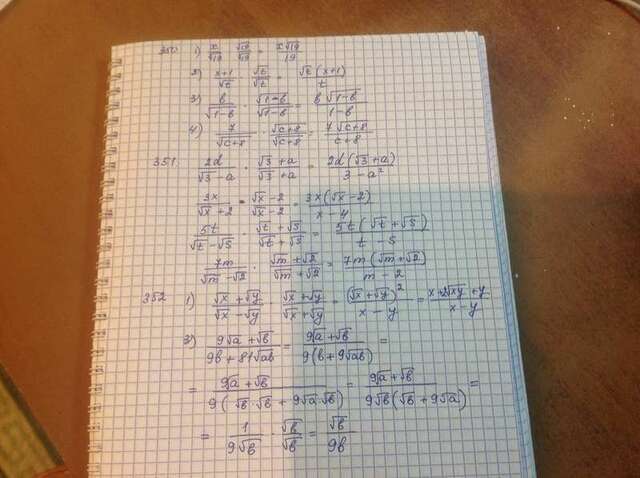 350 1) x/√19 · √19/√19 = x√19/19
2) x+1/√t · √t/√t = √t(x+1)/t
3) b/√1-b · √1-b/√1-b = b√1-b/1-b
4) 7/√c+8 · √c+8/√c+8 = 7√c+8/c+8
351. 2d/√3-a · √3+a/√3+a = 2d(√3+a)/3-a²
3x/√x+2 · √x-2/√x-2 = 3x(√x-2)/x-4
5t/√t-√5 · √t+√5/√t+√5 = 5t(√t+√5)/t-5
7m/√m-√2 · √m+√2/√m+√2 = 7m(√m+√2)/m-2
352 1) √x+√y/√x-√y · √x+√y/√x+√y = (√x+√y)²/x-y = x+2√xy+y/x-y
3) 9√a+√b/9b+81√ab = 9√a+√b/9(b+9√ab) =
= 9√a+√b/9(√b·√b+9√a·√b) = 9√a+√b/9√b(√b+9√a) =
= 1/9√b · √b/√b = √b/9b